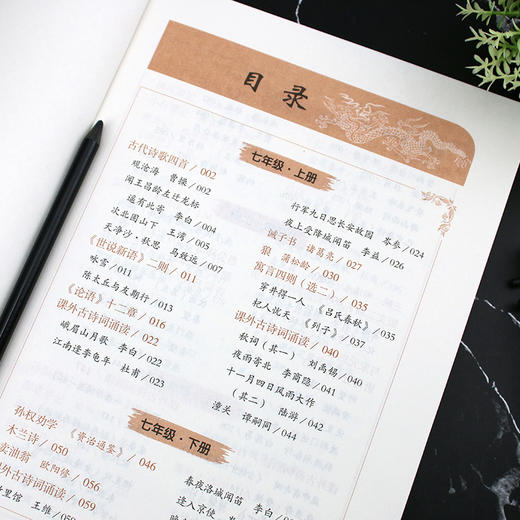 目录
七年级·上册
古代诗歌四首 / 002
观沧海 曹操 / 002
闻王昌龄左迁龙标
遥有此寄 李白 / 004
次北固山下 王湾 / 005
天净沙·秋思 马致远 / 007
《世说新语》二则 / 011
咏雪 / 011
陈太丘与友期行 / 013
《论语》十二章 / 016
课外古诗词诵读 / 022
峨眉山月歌 李白 / 022
江南逢李龟年 杜甫 / 023
行军九日思长安故园 岑参 / 024
夜上受降城闻笛 李益 / 026
诫子书 诸葛亮 / 027
狼 蒲松龄 / 030
寓言四则（选二） / 035
穿井得一人 《吕氏春秋》 / 035
杞人忧天 《列子》 / 037
课外古诗词诵读 / 040
秋词（其一） 刘禹锡 / 040
夜雨寄北 李商隐 / 041
十一月四日风雨大作
（其二） 陆游 / 042
潼关 谭嗣同 / 044
七年级·下册
孙权劝学 《资治通鉴》 / 046
木兰诗 / 050
卖油翁 欧阳修 / 056
课外古诗词诵读 / 059
里馆 王维 / 059
春夜洛城闻笛
逢入京使